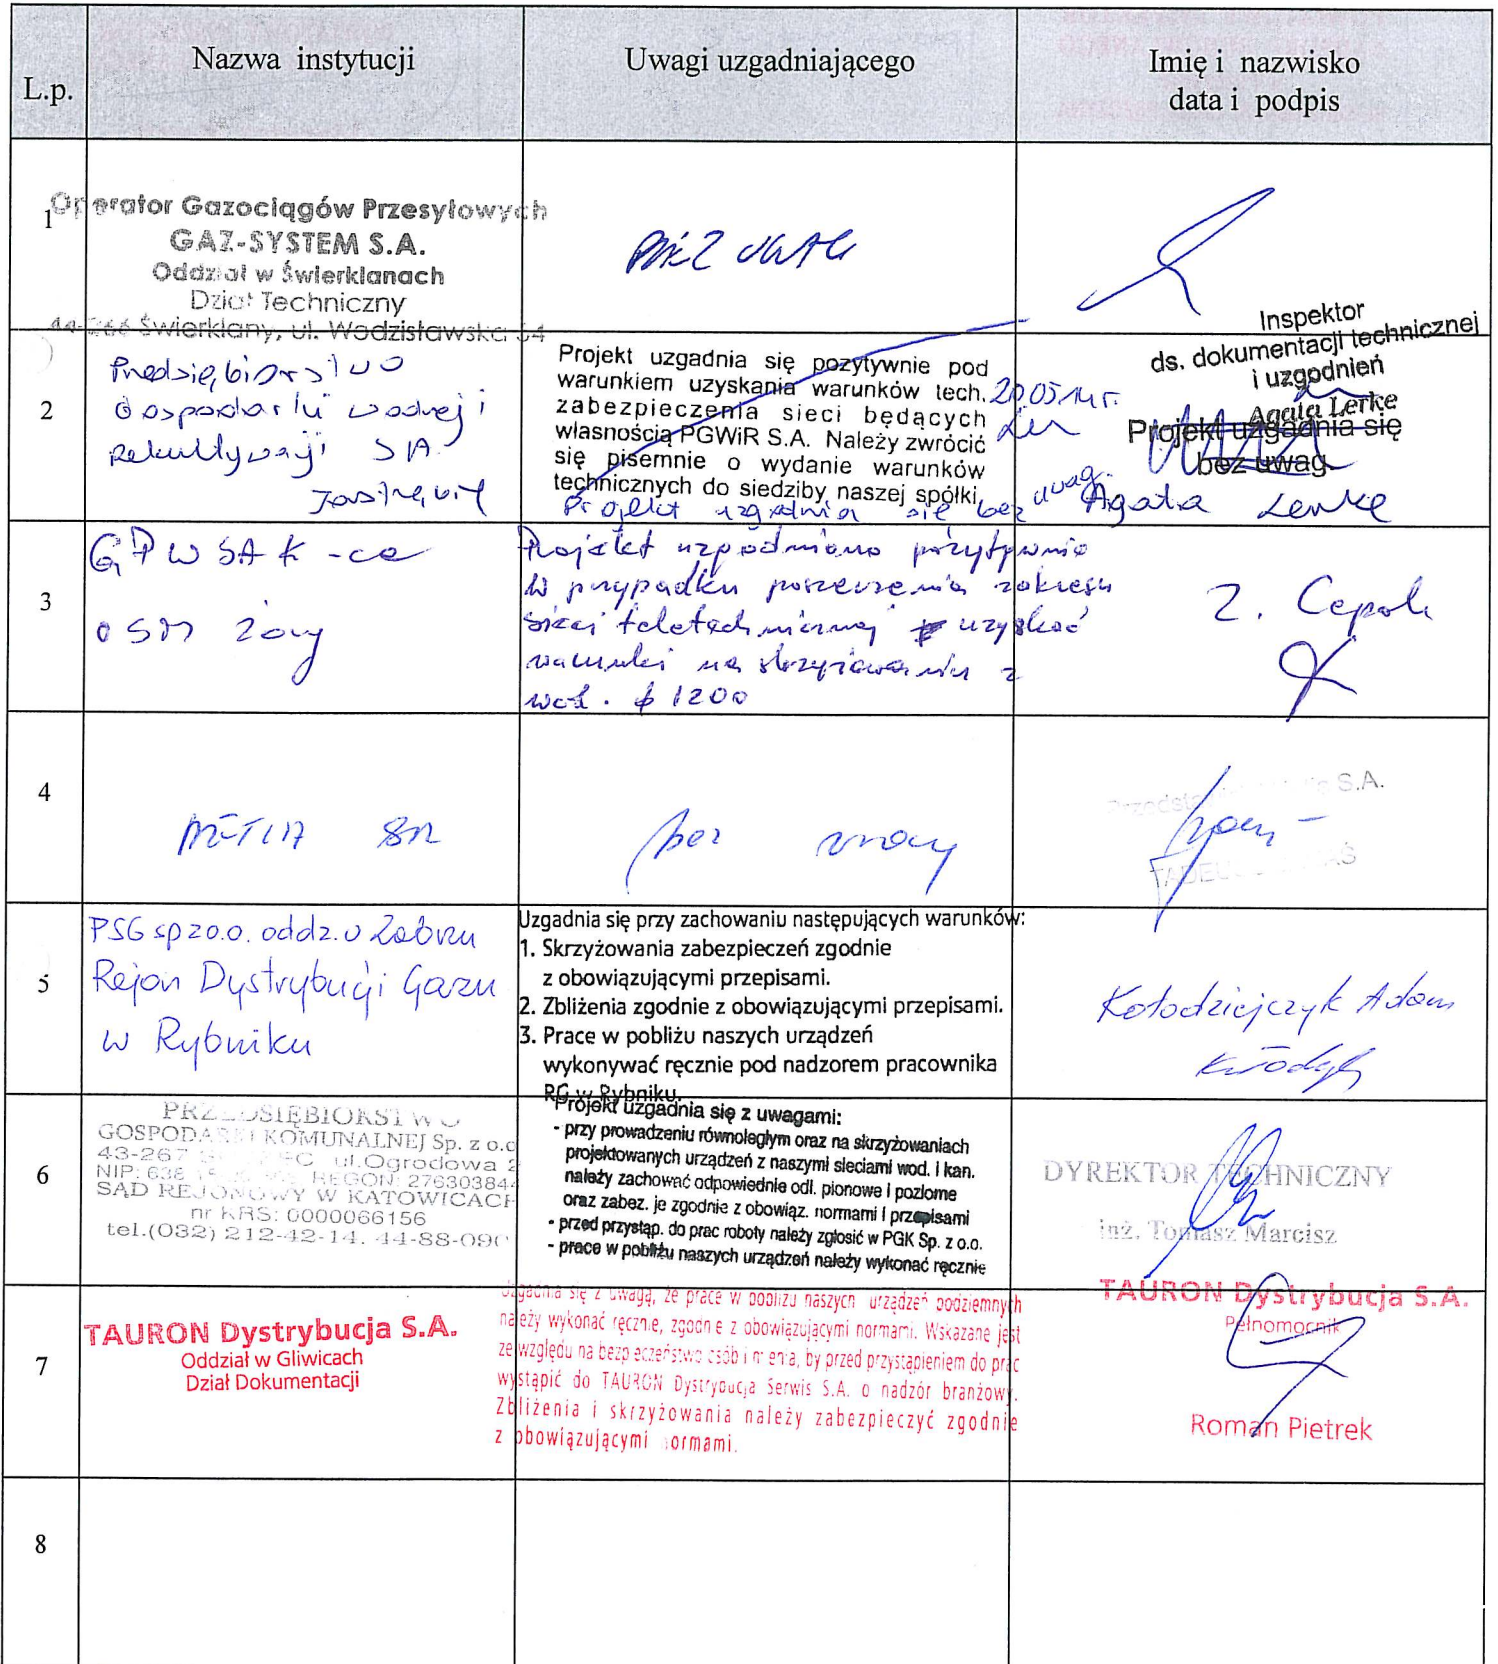 L.p.
Nazwa instytucji
Uwagi uzgadniającego
Imię i nazwisko
data i podpis
1
Operator Gazociągów Przesyłowych
GAZ-SYSTEM S.A.
Oddział w Świerklanach
Dział Techniczny
44-266 Świerklany, ul. Wodzisławska 54
BEZ UWAG
2
Przedsiębiorstwo
Gospodarki Wodnej i
Rekultywacji SA
Jastrzębie
Projekt uzgadnia się pozytywnie pod
warunkiem uzyskania warunków tech.
zabezpieczenia sieci będących
własnością PGWiR S.A. Należy zwrócić
się pisemnie o wydanie warunków
technicznych do siedziby naszej spółki.
Projekt uzgadnia się bez uwag.
20.05.14r.
Inspektor
ds. dokumentacji technicznej
i uzgodnień
Agata Lerke
Projekt uzgadnia się
bez uwag
Agata Lerke
3
GPW SA K-ce
OSM Żory
Projekt uzgodniono pozytywnie
W przypadku poszerzenia zakresu
sieci teletechnicznej uzyskać
warunki na skrzyżowaniu z
wod. ϕ 1200
Z. Cepok
4
bez uwag
S.A.
5
PSG sp z o.o. oddz. w Zabrzu
Rejon Dystrybucji Gazu
w Rybniku
Uzgadnia się przy zachowaniu następujących warunków:
1. Skrzyżowania zabezpieczeń zgodnie
z obowiązującymi przepisami.
2. Zbliżenia zgodnie z obowiązującymi przepisami.
3. Prace w pobliżu naszych urządzeń
wykonywać ręcznie pod nadzorem pracownika
RG w Rybniku.
Kołodziejczyk Adam
6
PRZEDSIĘBIORSTWO
GOSPODARKI KOMUNALNEJ Sp. z o.o
43-267 ul. Ogrodowa 2
NIP: 638 REGON: 276303844
SĄD REJONOWY W KATOWICACH
nr KRS: 0000066156
tel.(032) 212-42-14, 44-88-090
Projekt uzgadnia się z uwagami:
- przy prowadzeniu równoległym oraz na skrzyżowaniach
projektowanych urządzeń z naszymi sieciami wod. i kan.
należy zachować odpowiednie odl. pionowe i poziome
oraz zabez. je zgodnie z obowiąz. normami i przepisami
- przed przystąp. do prac roboty należy zgłosić w PGK Sp. z o.o.
- prace w pobliżu naszych urządzeń należy wykonać ręcznie
DYREKTOR TECHNICZNY
inż. Tomasz Marcisz
7
TAURON Dystrybucja S.A.
Oddział w Gliwicach
Dział Dokumentacji
Uzgadnia się z uwagą, że prace w pobliżu naszych urządzeń podziemnych
należy wykonać ręcznie, zgodnie z obowiązującymi normami. Wskazane jest
ze względu na bezpieczeństwo osób i mienia, by przed przystąpieniem do prac
wystąpić do TAURON Dystrybucja Serwis S.A. o nadzór branżowy.
Zbliżenia i skrzyżowania należy zabezpieczyć zgodnie
z obowiązującymi normami.
TAURON Dystrybucja S.A.
Pełnomocnik
Roman Pietrek
8